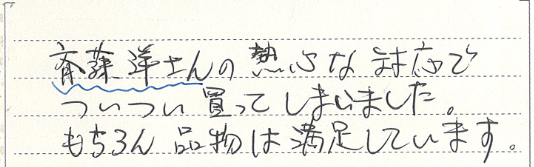 斉藤洋さんの熱心な対応で
ついつい買ってしまいました。
もちろん品物は満足しています。